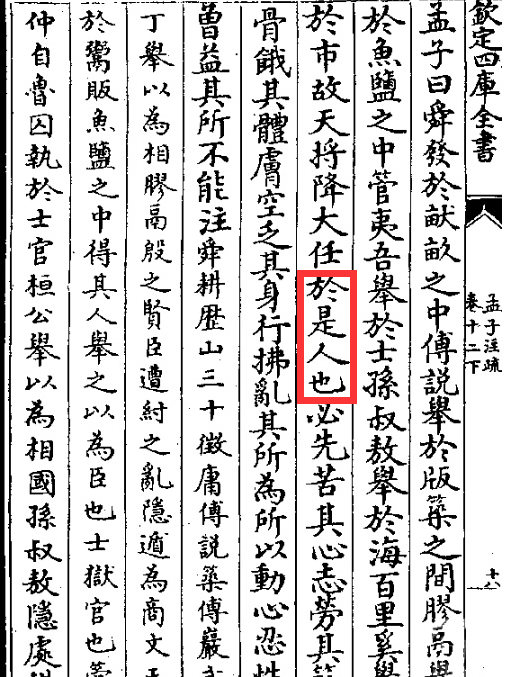 欽定四庫全書
孟子注疏
卷十二下
十八
孟子曰舜發於畎畝之中傅説舉於版築之間膠鬲舉
於魚鹽之中管夷吾舉於士孫叔敖舉於海百里奚舉
於市故天將降大任於是人也必先苦其心志勞其筋
骨餓其體膚空乏其身行拂亂其所為所以動心忍性
曾益其所不能注舜耕歴山三十徵庸傅説築傅巖武
丁舉以為相膠鬲殷之賢臣遭紂之亂隱遁為商文王
於鬻販魚鹽之中得其人舉之以為臣也士獄官也管
仲自魯囚執於士官桓公舉以為相國孫叔敖隱處